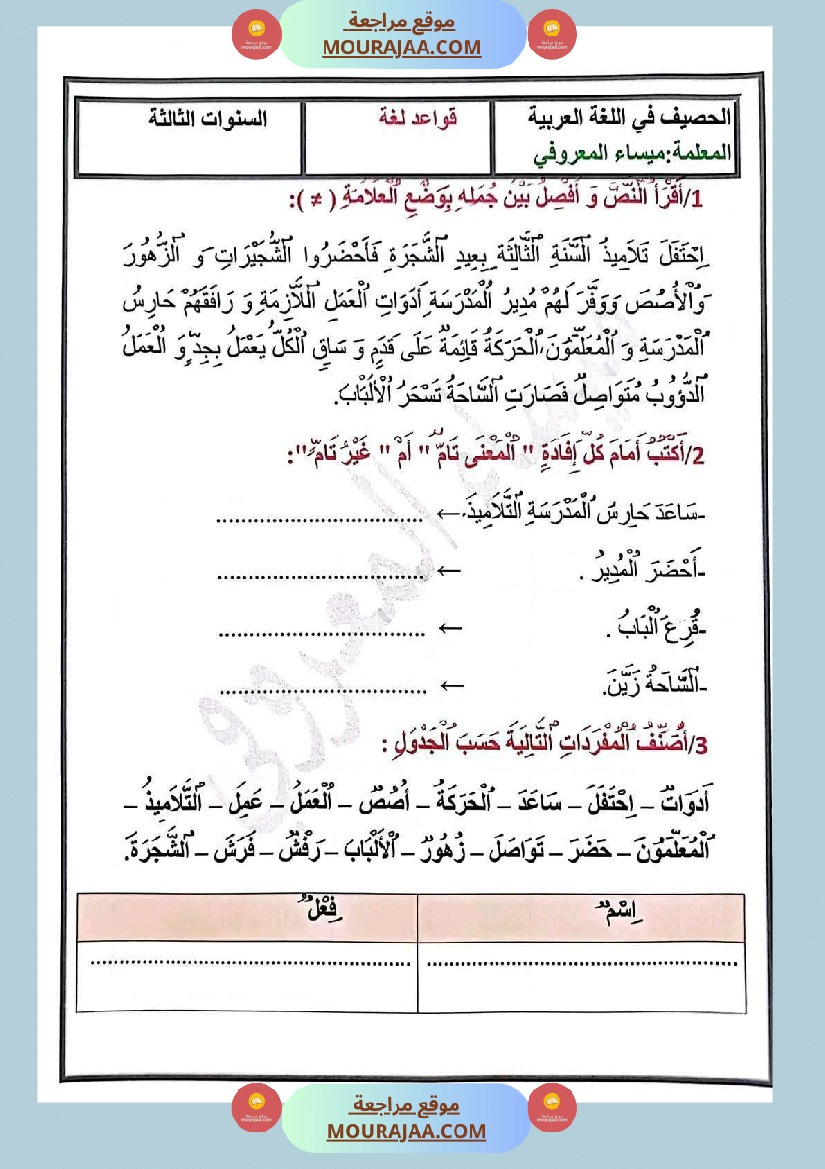 موقع مراجعة
MOURAJAA.COM
الحصيف في اللغة العربية
المعلمة:ميساء المعروفي
قواعد لغة
السنوات الثالثة
1/أَقْرَأُ النَّصَّ وَ أَفْصِلُ بَيْنَ جُمَلِهِ بِوَضْعِ الْعَلَامَةِ ( ≠ ):
اِحْتَفَلَ تَلَامِيذُ السَّنَةِ الثَّالِثَةِ بِعِيدِ الشَّجَرَةِ فَأَحْضَرُوا الشُّجَيْرَاتِ وَ الزُّهُورَ
وَالْأُصُصَ وَوَفَّرَ لَهُمْ مُدِيرُ الْمَدْرَسَةِ أَدَوَاتِ الْعَمَلِ اللَّازِمَةِ وَ رَافَقَهُمْ حَارِسُ
الْمَدْرَسَةِ وَ الْمُعَلِّمُونَ،الْحَرَكَةُ قَائِمَةٌ عَلَى قَدَمٍ وَ سَاقٍ الْكُلُّ يَعْمَلُ بِجِدٍّ وَ الْعَمَلُ
الدَّؤُوبُ مُتَوَاصِلٌ فَصَارَتِ السَّاحَةُ تَسْحَرُ الْأَلْبَابَ.
2/أَكْتُبُ أَمَامَ كُلِّ إِفَادَةٍ " الْمَعْنَى تَامٌّ " أَمْ " غَيْرُ تَامٍّ":
-سَاعَدَ حَارِسُ الْمَدْرَسَةِ التَّلَامِيذَ. ← ..................................
-أَحْضَرَ الْمُدِيرُ . ← ..................................
-قُرِعَ الْبَابُ . ← ..................................
-السَّاحَةُ زَيَّنَ. ← ..................................
3/أُصَنِّفُ الْمُفْرَدَاتِ التَّالِيَةَ حَسَبَ الْجَدْوَلِ :
أَدَوَاتٌ – اِحْتَفَلَ – سَاعَدَ – الْحَرَكَةُ – أُصُصٌ – الْعَمَلُ – عَمِلَ – التَّلَامِيذُ –
الْمُعَلِّمُونَ – حَضَرَ – تَوَاصَلَ – زُهُورٌ – الْأَلْبَابَ – رَفْشٌ – فَرَشَ – الشَّجَرَةَ.
اِسْمٌ
فِعْلٌ
موقع مراجعة
MOURAJAA.COM